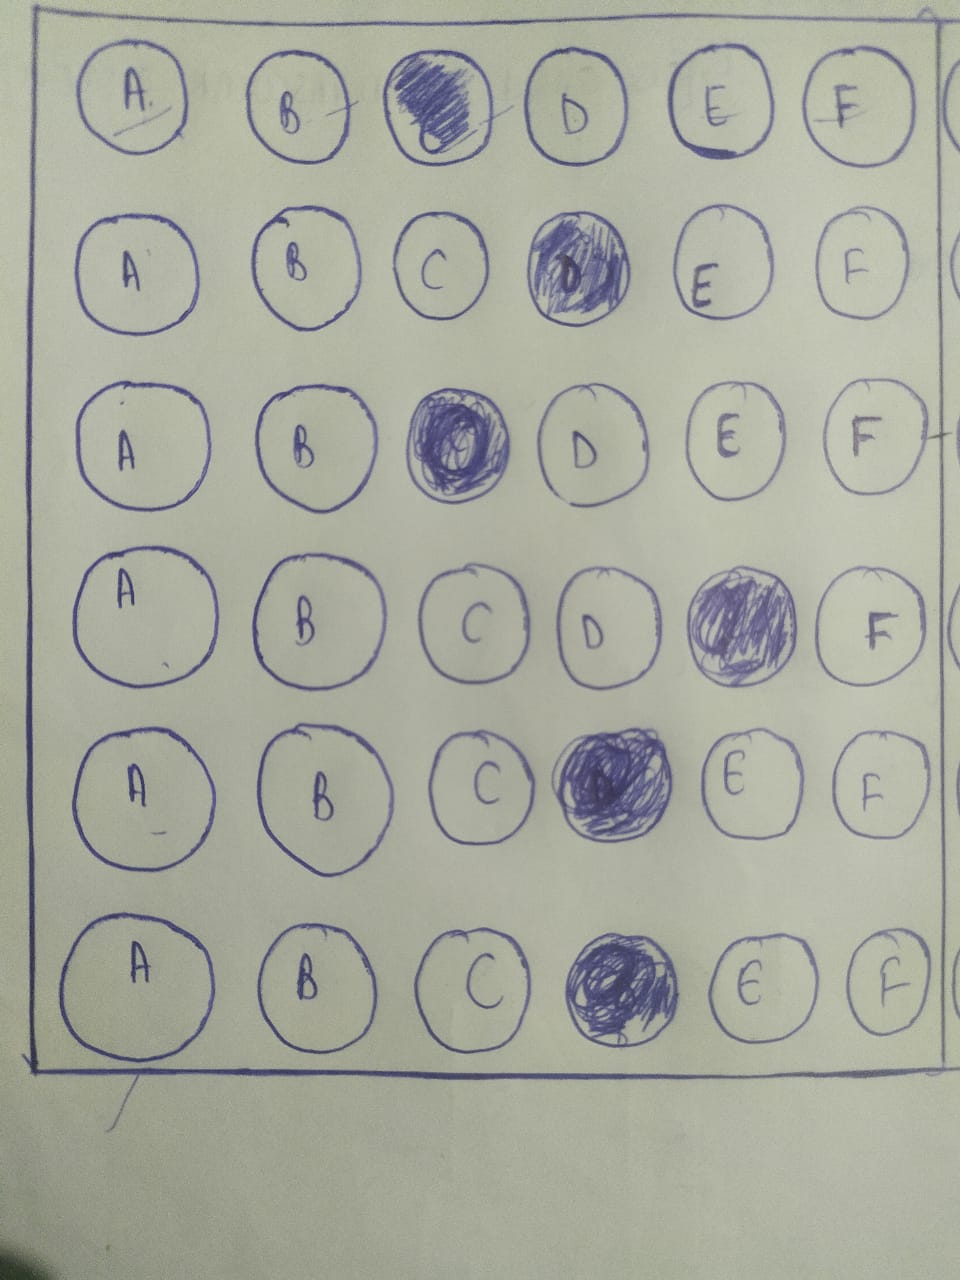 A B D E F
A B C D E F
A B C D E F
A B C D F
A B C D E F
A B C E F